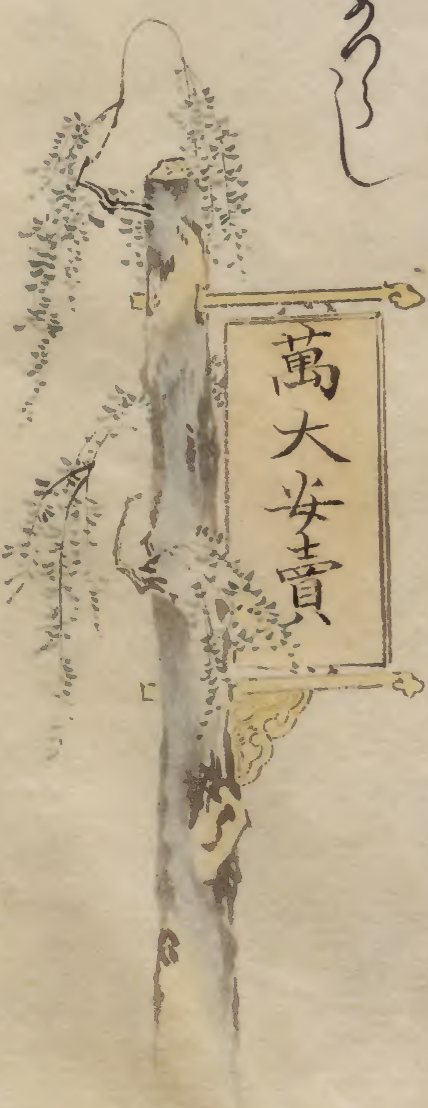 萬大安賣